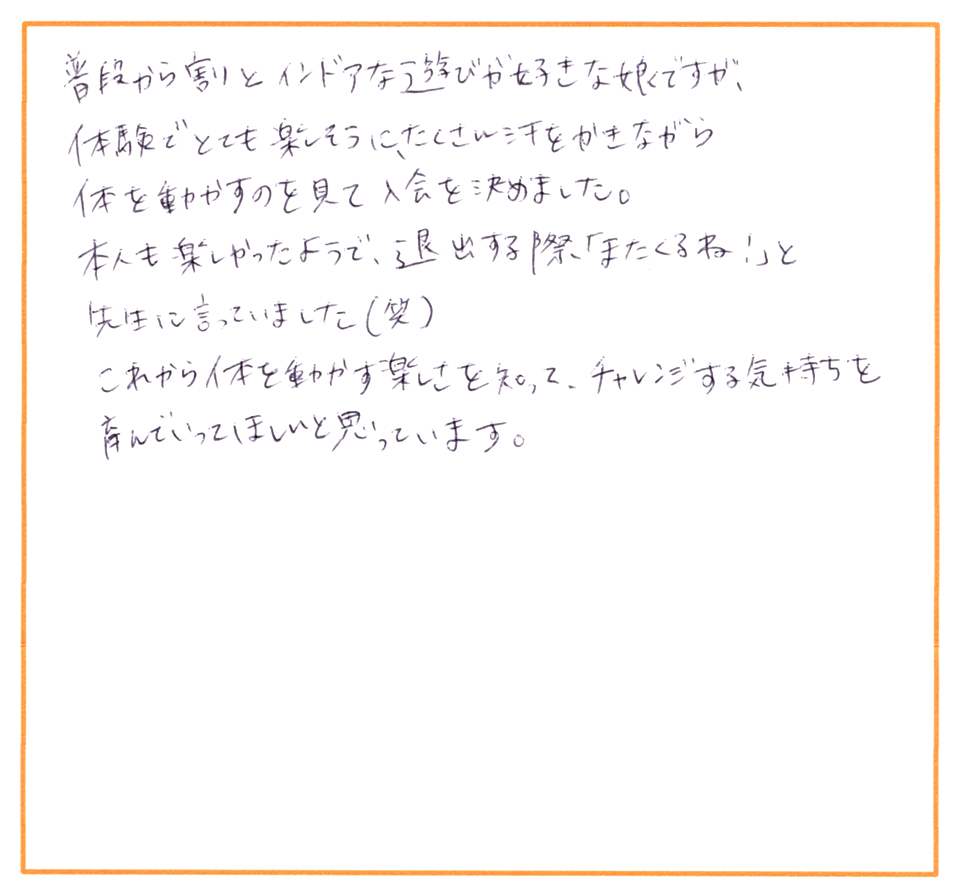 普段から割りとインドアな遊びが好きな娘ですが、
体験でとても楽しそうに、たくさん汗をかきながら
体を動かすのを見て入会を決めました。
本人も楽しかったようで、退出する際、「またくるね!」と
先生に言っていました(笑)
これから体を動かす楽しさを知って、チャレンジする気持ちを
育んでいってほしいと思っています。